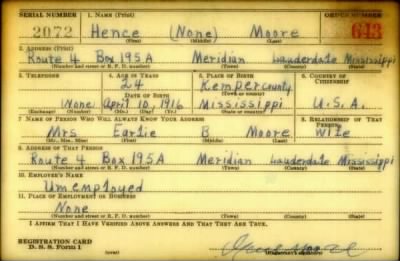 SERIAL NUMBER 1. NAME (Print) ORDER NUMBER
2072 Hence (None) Moore 643
(First) (Middle) (Last)
2. ADDRESS (Print)
Route 4 Box 195A Meridian Lauderdale Mississippi
(Number and street or R. F. D. number) (Town) (County) (State)
3. TELEPHONE 4. AGE IN YEARS 5. PLACE OF BIRTH 6. COUNTRY OF CITIZENSHIP
24 Kemper county
DATE OF BIRTH (Town or county)
None April 10, 1916 Mississippi U.S.A.
(Exchange) (Number) (Mo.) (Day) (Yr.) (State or country)
7. NAME OF PERSON WHO WILL ALWAYS KNOW YOUR ADDRESS 8. RELATIONSHIP OF THAT PERSON
Mrs Earlie B Moore Wife
(Mr., Mrs., Miss) (First) (Middle) (Last)
9. ADDRESS OF THAT PERSON
Route 4 Box 195A Meridian Lauderdale Mississippi
(Number and street or R. F. D. number) (Town) (County) (State)
10. EMPLOYER'S NAME
Unemployed
11. PLACE OF EMPLOYMENT OR BUSINESS
None
(Number and street or R. F. D. number) (Town) (County) (State)
I AFFIRM THAT I HAVE VERIFIED ABOVE ANSWERS AND THAT THEY ARE TRUE.
REGISTRATION CARD
D. S. S. Form 1 (Registrant's signature)